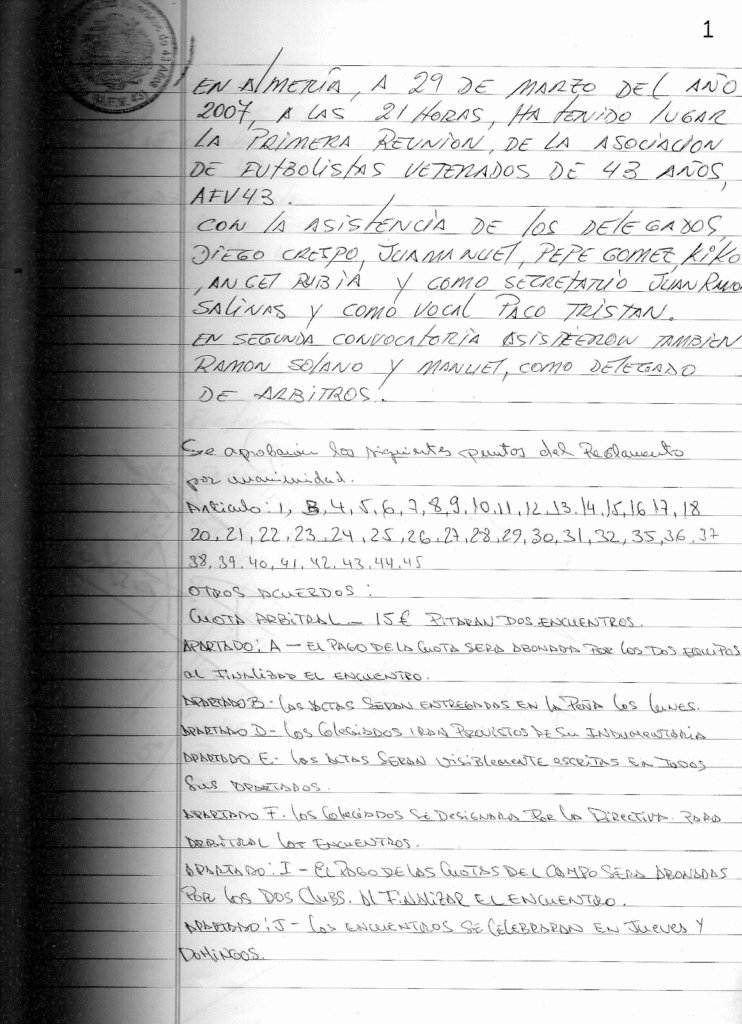 1
EN ALMERÍA, A 29 DE MARZO DEL AÑO
2007, A LAS 21 HORAS, HA TENIDO LUGAR
LA PRIMERA REUNION, DE LA ASOCIACION
DE FUTBOLISTAS VETERADOS DE 43 AÑOS,
AFV43.
CON LA ASISTENCIA DE LOS DELEGADOS,
DIEGO CRESPO, JUAMANUEL, PEPE GOMEZ, KIKO
, ANGEL RUBIA Y COMO SECRETARIO JUAN RAMO
SALINAS Y COMO VOCAL PACO TRISTAN.
EN SEGUNDA CONVOCATORIA ASISTEERON TAMBIEN
RAMON SOLANO Y MANUEL, COMO DELEGADO
DE ARBITROS.
Se aprobaron los siguientes puntos del Reglamento
por unanimidad.
Articulo: 1, 3, 4, 5, 6, 7, 8, 9, 10, 11, 12, 13, 14, 15, 16 17, 18
20, 21, 22, 23, 24, 25, 26, 27, 28, 29, 30, 31, 32, 35, 36, 37
38, 39, 40, 41, 42, 43, 44, 45
OTROS ACUERDOS:
CUOTA ARBITRAL - 15€ PITARAN DOS ENCUENTROS.
APARTADO: A - EL PAGO DE LA CUOTA SERA ABONADA POR LOS DOS EQUIPOS
al FINALIZAR EL ENCUENTRO.
APARTADO B - LAS ACTAS SERAN ENTREGADAS EN LA PEÑA LOS LUNES.
APARTADO D - LOS COLEGIADOS IRAN PROVISTOS DE SU INDUMENTARIA
APARTADO E - LAS ACTAS SERAN VISIBLEMENTE ESCRITAS EN TODOS
SUS APARTADOS.
APARTADO F. LOS COLEGIADOS SE DESIGNARA POR LA DIRECTIVA. PARA
ARBITRAL LOS ENCUENTROS.
APARTADO: I - EL PAGO DE LAS CUOTAS DEL CAMPO SERA ABONADAS
POR LOS DOS CLUBS. AL FINALIZAR EL ENCUENTRO.
APARTADO: J - LOS ENCUENTROS SE CELEBRARAN EN JUEVES Y
DOMINGOS.